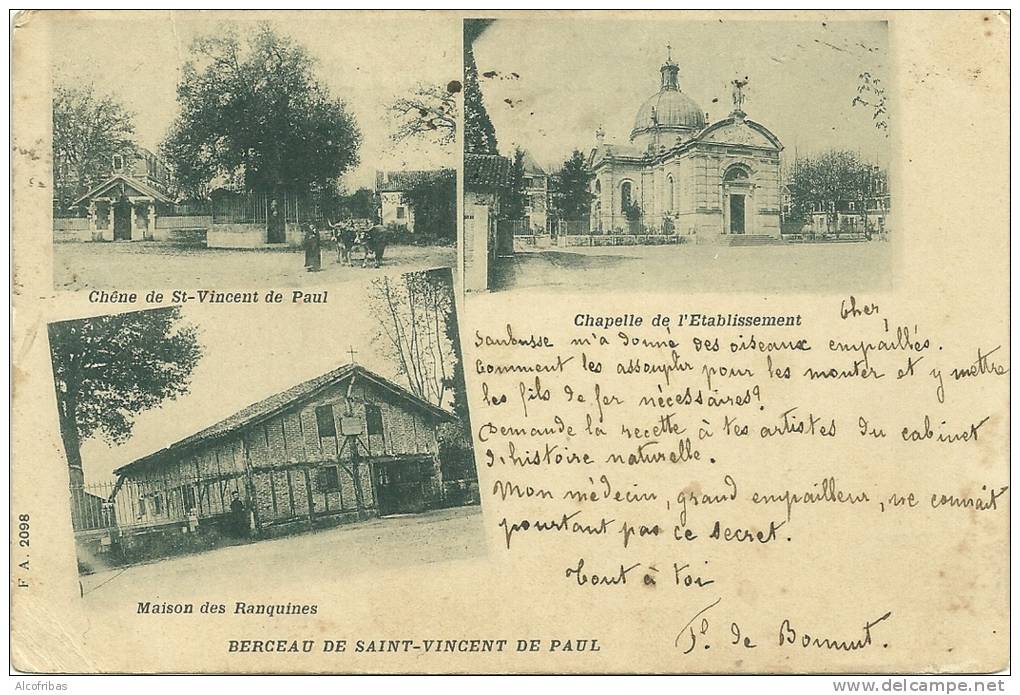 Chêne de St-Vincent de Paul
Chapelle de l'Etablissement
Cher,
Saubusse m'a donné des oiseaux empaillés.
Comment les assouplir pour les monter et y mettre
les fils de fer nécessaires?
Demande la recette à tes artistes du cabinet
d'histoire naturelle.
Mon médecin, grand empailleur, ne connait
pourtant pas ce secret.
Tout à toi
de Bonnut.
Maison des Ranquines
BERCEAU DE SAINT-VINCENT DE PAUL
F A. 2098
Alcofribas
www.delcampe.net